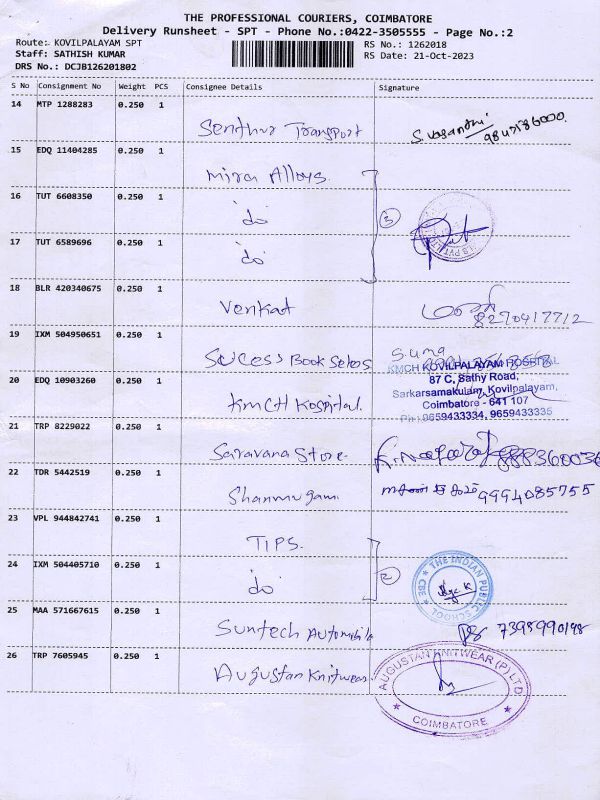 THE PROFESSIONAL COURIERS, COIMBATORE
Delivery Runsheet - SPT - Phone No.:0422-3505555 - Page No.:2
Route: KOVILPALAYAM SPT
RS No.: 1262018
Staff: SATHISH KUMAR
RS Date: 21-Oct-2023
DRS No.: DCJB126201802
S No Consignment No Weight PCS Consignee Details Signature
14 MTP 1288283 0.250 1
Senthur Transport S. Vasanthi
15 EDQ 11404285 0.250 1
Mira Alloys
16 TUT 6608350 0.250 1
do 3
17 TUT 6589696 0.250 1
do
18 BLR 420340675 0.250 1
Venkat 8270417712
19 IXM 504950651 0.250 1
Sucess Book Selers S. Uma
KMCH KOVILPALAYAM HOSPITAL
20 EDQ 10903260 0.250 1
87 C, Sathy Road,
Sarkarsamakulam, Kovilpalayam,
KMCH Hospital. Coimbatore - 641 107
Ph : 9659433334, 9659433335
21 TRP 8229022 0.250 1
Saravana Store
22 TDR 5442519 0.250 1
Shanmugam 9994085755
23 VPL 944842741 0.250 1
TIPS.
24 IXM 504405710 0.250 1
do 2 THE INDIAN PUBLIC SCHOOL CBE
25 MAA 571667615 0.250 1
Suntech Automobile
26 TRP 7605945 0.250 1
Augustan Knitwear AUGUSTAN KNITWEAR (P) LTD. COIMBATORE